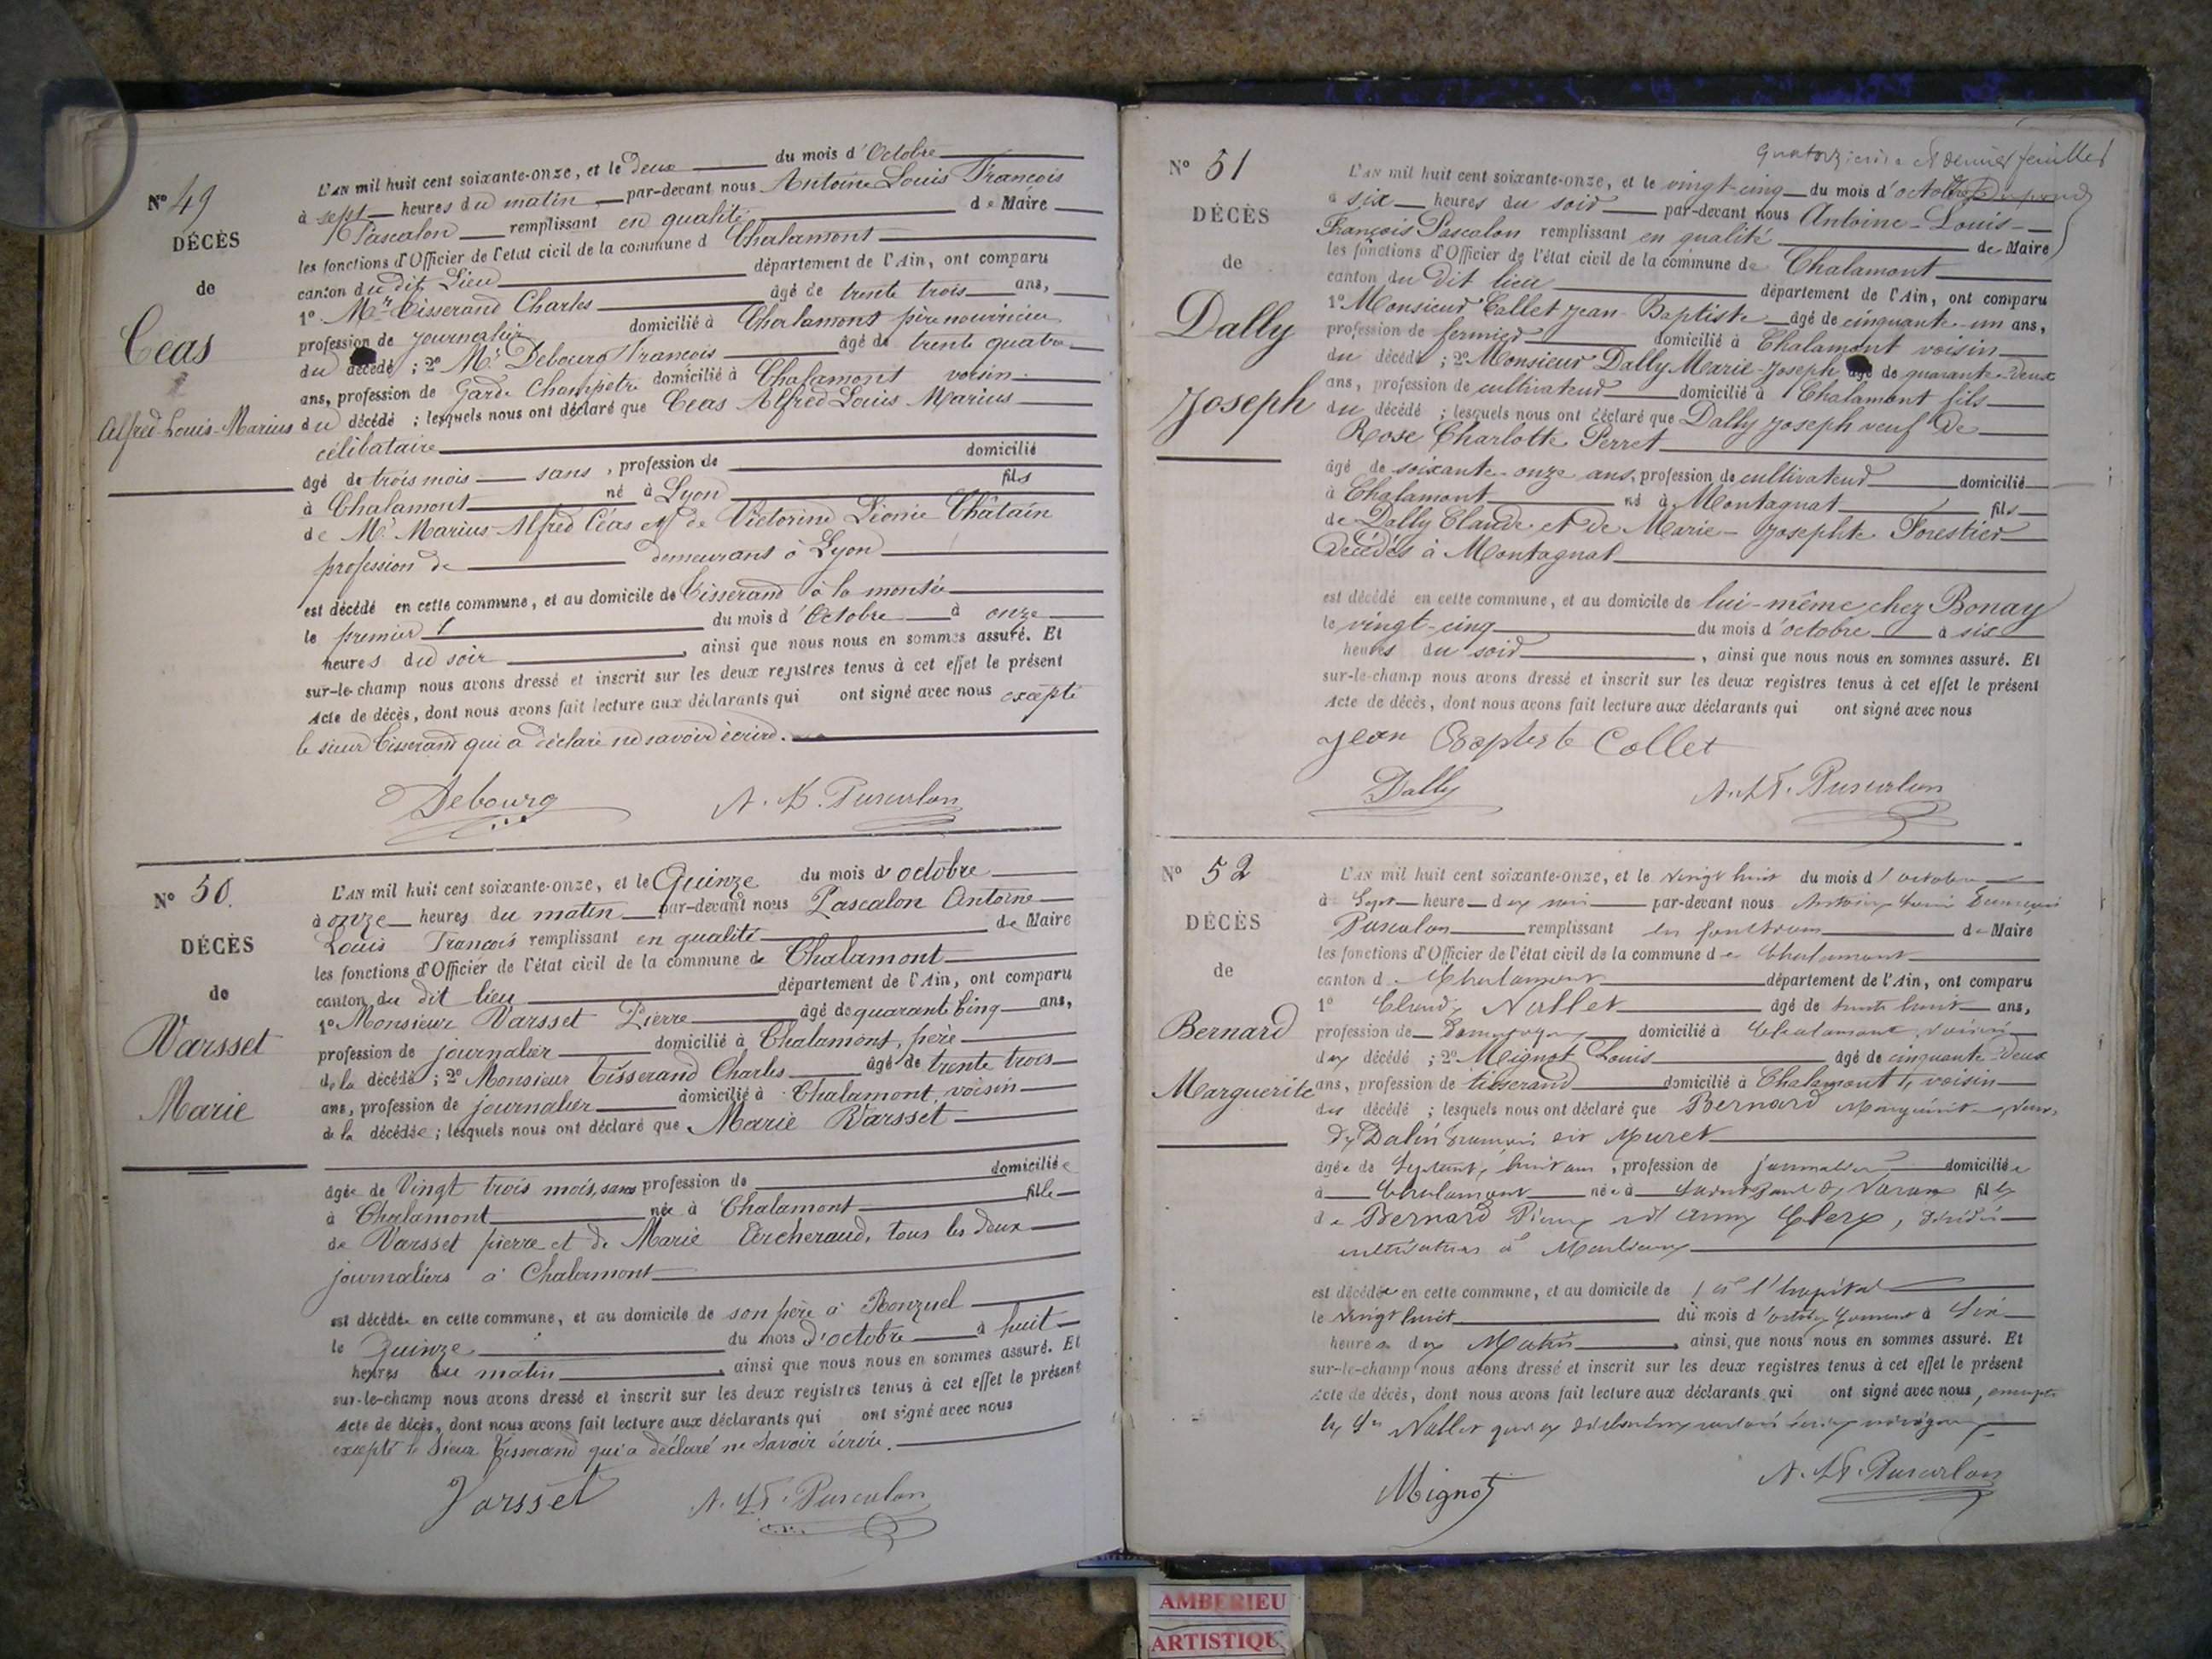 N° 49
DÉCÈS
de
Ceas
Alfred-Louis-Marius
L'AN mil huit cent soixante-onze, et le Deux du mois d'Octobre
à sept heures du matin par-devant nous Antoine Louis François
Pascalon remplissant en qualité de Maire
les fonctions d'Officier de l'état civil de la commune d Chalamont
canton du dit Lieu département de l'Ain, ont comparu
1° Mr Tisserand Charles âgé de trente trois ans,
profession de journalier domicilié à Chalamont père nourricier
du décédé ; 2° Mr Debourg François âgé de trente quatre
ans, profession de Garde Champêtre domicilié à Chalamont voisin
du décédé ; lesquels nous ont déclaré que Ceas Alfred Louis Marius
célibataire
âgé de trois mois sans, profession de domicilié
à Chalamont né à Lyon fils
de Mr Marius Alfred Céas et de Victorine Léonie Châtain
profession de demeurant à Lyon
est décédé en cette commune, et au domicile de Tisserand à la montée
le premier du mois d'Octobre à onze
heures du soir, ainsi que nous nous en sommes assuré. Et
sur-le-champ nous avons dressé et inscrit sur les deux registres tenus à cet effet le présent
Acte de décès, dont nous avons fait lecture aux déclarants qui ont signé avec nous excepté
le sieur Tisserand qui a déclaré ne savoir écrire.
Debourg A. L. Pascalon
N° 50.
DÉCÈS
de
Varsset
Marie
L'AN mil huit cent soixante-onze, et le Quinze du mois d'octobre
à onze heures du matin par-devant nous Pascalon Antoine
Louis François remplissant en qualité de Maire
les fonctions d'Officier de l'état civil de la commune de Chalamont
canton du dit lieu département de l'Ain, ont comparu
1° Monsieur Varsset Pierre âgé de quarante cinq ans,
profession de journalier domicilié à Chalamont, père
de la décédé ; 2° Monsieur Tisserand Charles âgé de trente trois
ans, profession de journalier domicilié à Chalamont, voisin
de la décédée ; lesquels nous ont déclaré que Marie Varsset
domiciliée
âgée de Vingt trois mois, sans profession de
à Chalamont née à Chalamont fille
de Varsset pierre et de Marie Archeraud, tous les deux
journaliers à Chalamont
est décédée en cette commune, et au domicile de son père à Ronzuel
le Quinze du mois d'octobre à huit
heures du matin, ainsi que nous nous en sommes assuré. Et
sur-le-champ nous avons dressé et inscrit sur les deux registres tenus à cet effet le présent
Acte de décès, dont nous avons fait lecture aux déclarants qui ont signé avec nous
excepté le Sieur Tisserand qui a déclaré ne savoir écrire.
Varsset A. L. F. Pascalon
quatorzième et dernier feuillet
N° 51
DÉCÈS
de
Dally
Joseph
L'AN mil huit cent soixante-onze, et le vingt-cinq du mois d'octobre
à six heures du soir par-devant nous Antoine-Louis-
François Pascalon remplissant en qualité de Maire
les fonctions d'Officier de l'état civil de la commune de Chalamont
canton du Dit lieu département de l'Ain, ont comparu
1° Monsieur Collet Jean-Baptiste âgé de cinquante-un ans,
profession de fermier domicilié à Chalamont voisin
du décédé ; 2° Monsieur Dally Marie-Joseph âgé de quarante-deux
ans, profession de cultivateur domicilié à Chalamont fils
du décédé ; lesquels nous ont déclaré que Dally Joseph veuf de
Rose Charlotte Perret
âgé de soixante-onze ans, profession de cultivateur domicilié
à Chalamont né à Montagnat fils
de Dally Claude et de Marie-Josephte Forestier
Décédés à Montagnat
est décédé en cette commune, et au domicile de lui-même chez Bonay
le vingt-cinq du mois d'octobre à six
heures du soir, ainsi que nous nous en sommes assuré. Et
sur-le-champ nous avons dressé et inscrit sur les deux registres tenus à cet effet le présent
Acte de décès, dont nous avons fait lecture aux déclarants qui ont signé avec nous
Jean Baptiste Collet
Dally A. L. F. Pascalon
N° 52
DÉCÈS
de
Bernard
Marguerite
L'AN mil huit cent soixante-onze, et le vingt huit du mois d'octobre
à Sept heure du par-devant nous Antoine Louis François
Pascalon remplissant les fonctions de Maire
les fonctions d'Officier de l'état civil de la commune de Chalamont
canton d Chalamont département de l'Ain, ont comparu
1° Claude Nallet âgé de trente huit ans,
profession de domicilié à Chalamont voisin
du décédé ; 2° Mignot Louis âgé de cinquante deux
ans, profession de tisserand domicilié à Chalamont, voisin
du décédé ; lesquels nous ont déclaré que Bernard Marguerite veuve
de Dalin François dit Muret
âgée de Septante huit ans, profession de journalière domiciliée
à Chalamont née à Saint Paul de Varax fille
de Bernard Pierre et Anne Clerc, décédés
cultivateurs à Monlieux
est décédée en cette commune, et au domicile de à l'hopital
le vingt huit du mois d'octobre courant à Six
heures du Matin, ainsi que nous nous en sommes assuré. Et
sur-le-champ nous avons dressé et inscrit sur les deux registres tenus à cet effet le présent
Acte de décès, dont nous avons fait lecture aux déclarants qui ont signé avec nous, excepté
le Sr Nallet qui a
Mignot A. L. F. Pascalon
AMBERIEU
ARTISTIQU